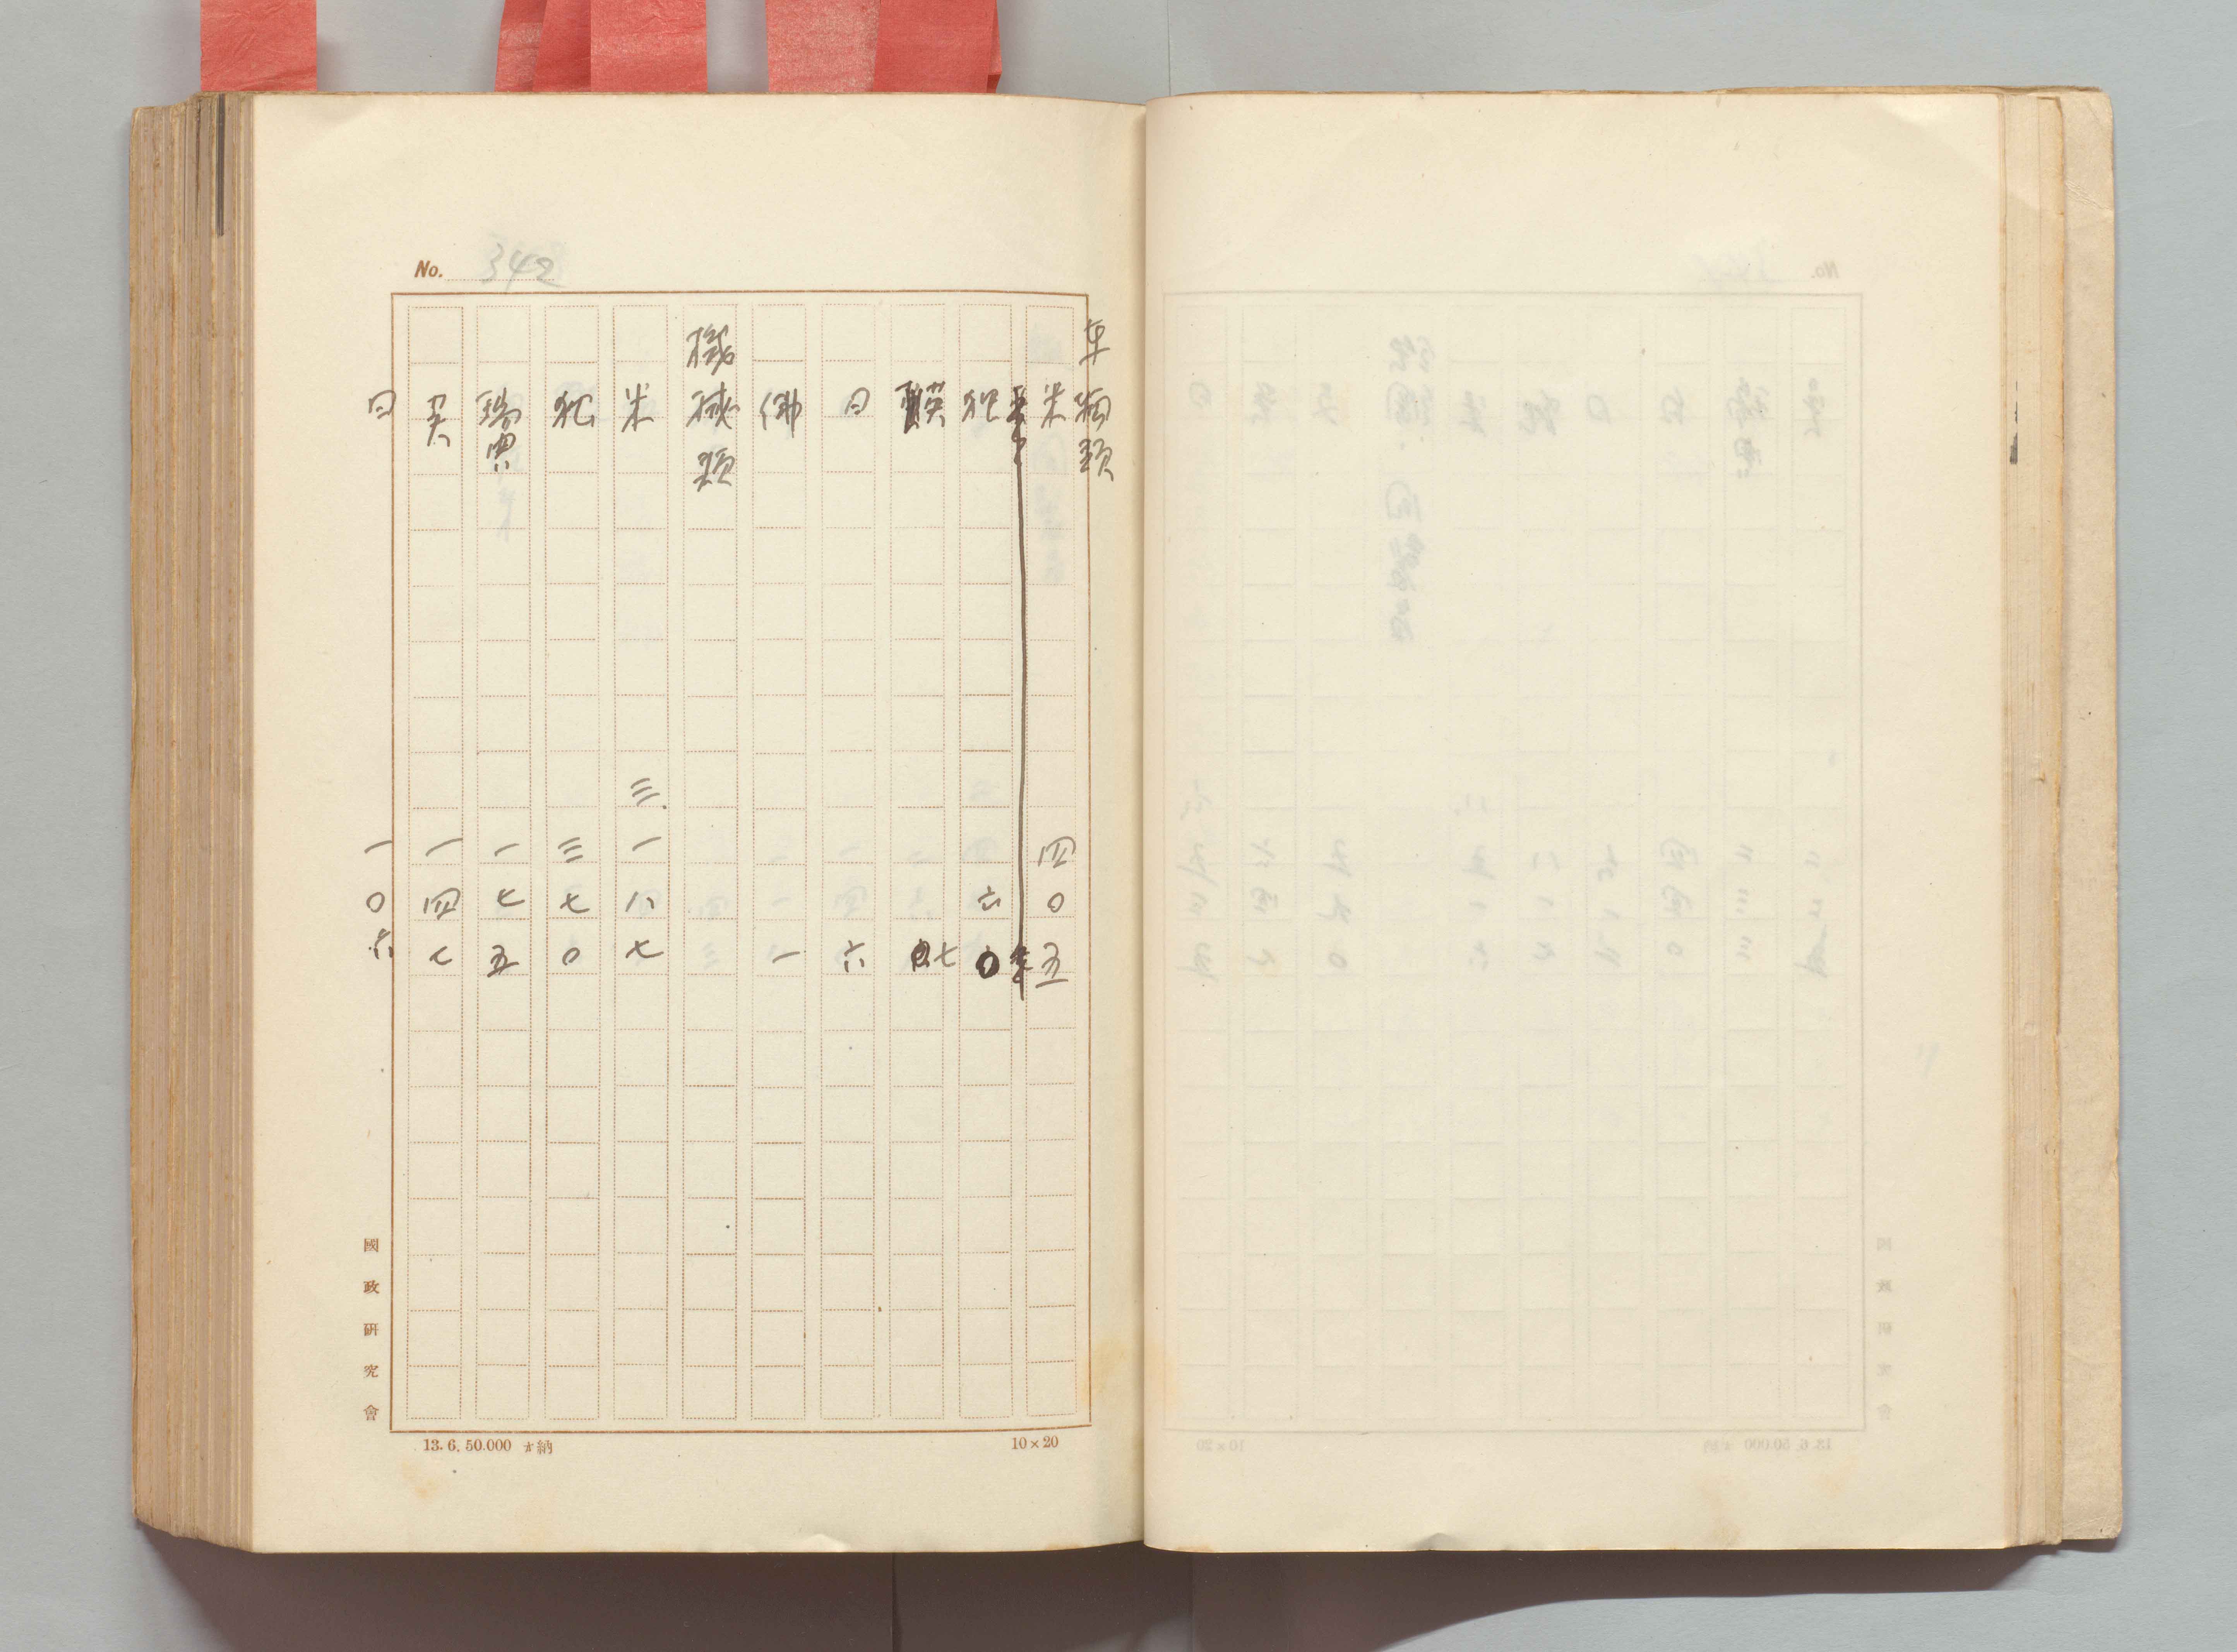 No. 342
車輌類
米 四〇五
独 六〇
英 七
日 六
佛 一
機械類
米 三一八七
独 三七〇
瑞典 一七五
英 一四七
日 一〇六
國政研究會
13.6.50.000 納
10×20